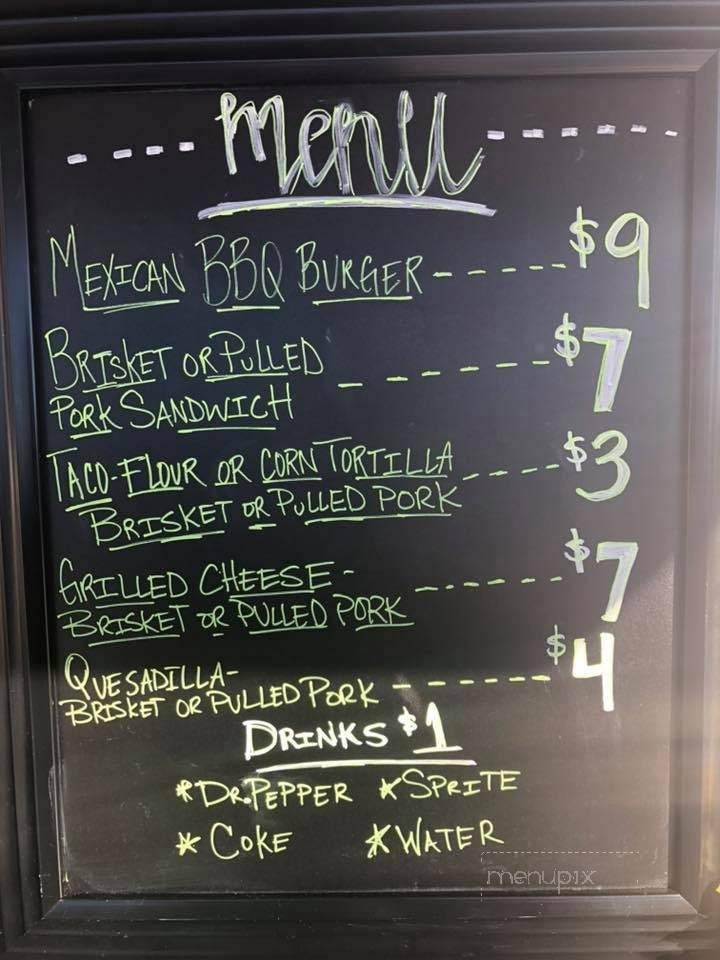 ---- Menu ------
MEXICAN BBQ BURGER ------ $9
BRISKET OR PULLED
PORK SANDWICH ------- $7
TACO-FLOUR OR CORN TORTILLA ----- $3
BRISKET OR PULLED PORK
GRILLED CHEESE- ------- $7
BRISKET OR PULLED PORK
QUESADILLA-
BRISKET OR PULLED PORK ------- $4
DRINKS $1
*DR.PEPPER *SPRITE
*COKE *WATER
menupix